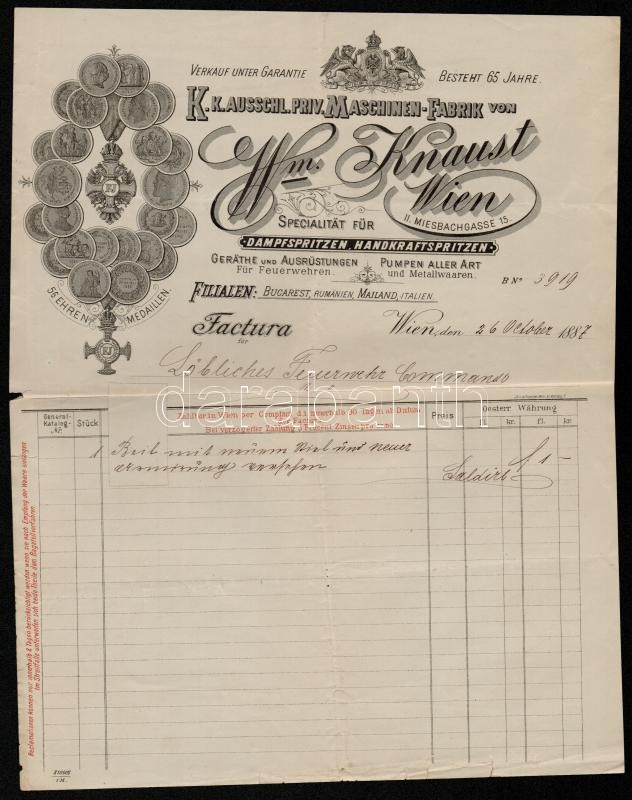 VERKAUF UNTER GARANTIE
BESTEHT 65 JAHRE.
K.K. AUSSCHL. PRIV. MASCHINEN-FABRIK VON
Wm. Knaust
Wien
II. MIESBACHGASSE 15.
SPECIALITÄT FÜR
DAMPFSPRITZEN, HANDKRAFTSPRITZEN
GERÄTHE UND AUSRÜSTUNGEN
Für Feuerwehren.
PUMPEN ALLER ART
und Metallwaaren.
56 EHREN MEDAILLEN.
B No 3919
FILIALEN: BUCAREST, RUMÄNIEN, MAILAND, ITALIEN.
Factura
für
Wien, den 26 October 1887
Löbliches Feuerwehr Commando
darabanth
General-Katalog-No
Stück
Zahlbar in Wien per Comptant d. i. innerhalb 30 Tagen ab Datum
der Factura.
Bei verzögerter Zahlung Procent Zinsen
Preis
Oesterr Währung
kr. fl. kr.
1 Beil mit neuem Stiel und neuer
Armirung versehen
Saldirt
f 1 -
Reclamationen können nur innerhalb 8 Tagen berücksichtigt werden wenn sie nach Empfang der Waare einlangen
Im Streitfalle unterwerfen sich beide Theile dem Bagatellverfahren.